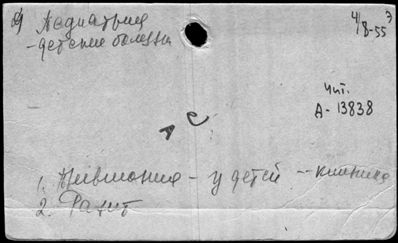 Педиатрия
- детские болезни
4/8-55 э
Чит.
А-13838
А С
1. Пневмония - у детей -- клиника
2. Рахит